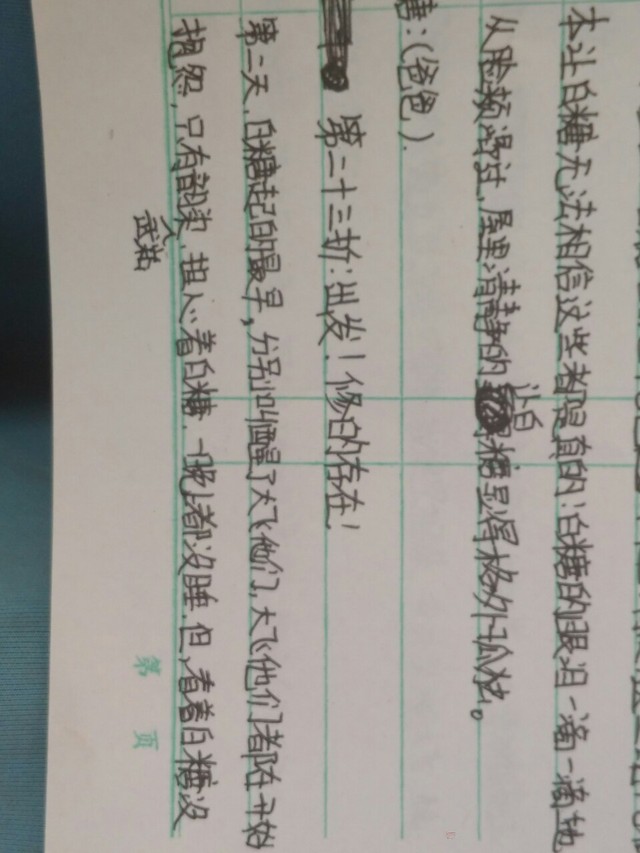 本让白糖无法相信这些都是真的，白糖的眼泪一滴一滴地
从脸颊滑过，屋里清静的让白糖显得格外孤独。
糖：（爸爸）.
第二十三折：出发！修的存在！
第二天，白糖起的最早，分别叫醒了大飞他们，大飞他们都在开始
抱怨，只有武崧，担心着白糖，一晚上都没睡，但，看着白糖没
第 页